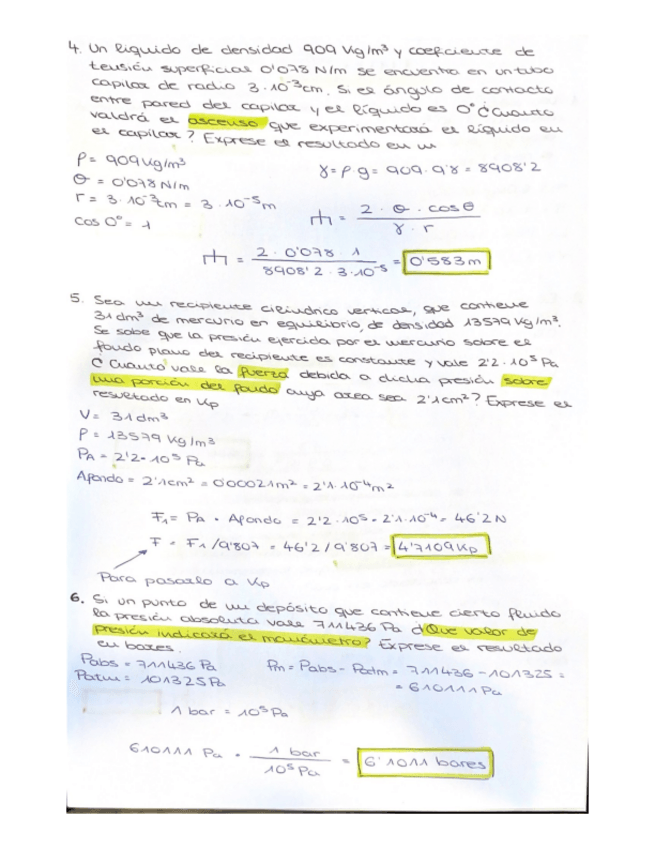 4. Un líquido de densidad 909 Kg/m³ y coeficiente de
tensión superficial 0'078 N/m se encuentra en un tubo
capilar de radio 3·10⁻³cm. Si el ángulo de contacto
entre pared del capilar y el líquido es 0° ¿Cuanto
valdrá el ascenso que experimentará el líquido en
el capilar? Exprese el resultado en m
ρ = 909 Kg/m³
γ = ρ·g = 909·9'8 = 8908'2
θ = 0'078 N/m
r = 3·10⁻³cm = 3·10⁻⁵m
cos 0° = 1
m = 2·θ·cosθ / γ·r
m = 2·0'078·1 / 8908'2·3·10⁻⁵ = 0'583m
5. Sea un recipiente cilíndrico vertical, que contiene
31 dm³ de mercurio en equilibrio, de densidad 13579 Kg/m³.
Se sabe que la presión ejercida por el mercurio sobre el
fondo plano del recipiente es constante y vale 2'2·10⁵ Pa
¿Cuanto vale la fuerza debida a dicha presión sobre
una porción del fondo cuya area sea 2'1cm²? Exprese el
resultado en Kp
V = 31 dm³
ρ = 13579 Kg/m³
PA = 2'2·10⁵ Pa
Afondo = 2'1cm² = 0'00021m² = 2'1·10⁻⁴m²
F₁ = PA · Afondo = 2'2·10⁵·2'1·10⁻⁴ = 46'2N
F = F₁/9'807 = 46'2/9'807 = 4'7109Kp
Para pasarlo a Kp
6. Si un punto de un depósito que contiene cierto fluido
la presión absoluta vale 711436 Pa ¿Que valor de
presión indicará el manómetro? Exprese el resultado
en bares.
Pabs = 711436 Pa
Pm = Pabs - Patm = 711436 - 101325 =
Patm = 101325 Pa
= 610111 Pa
1 bar = 10⁵ Pa
610111 Pa · 1 bar / 10⁵ Pa = 6'1011 bares